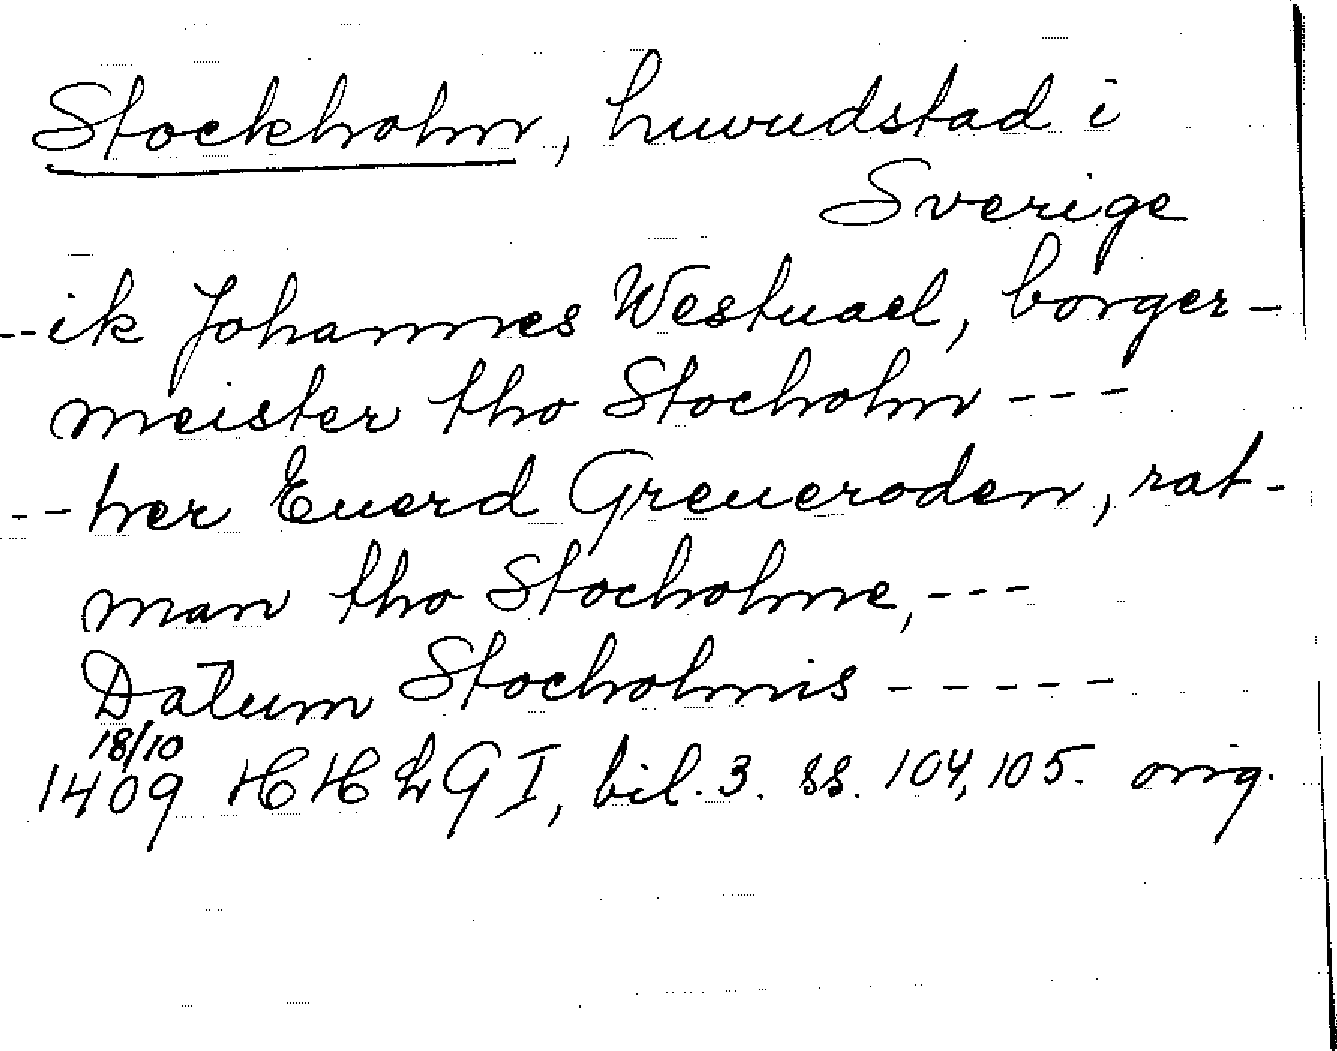 Stockholm, huvudstad i
Sverige
--ik Johannes Westuael, borger-
meister tho Stocholm ---
--her Euerd Greueroden, rat-
man tho Stocholme, ---
Datum Stocholmis -----
18/10
1409 HHLG I, bil. 3. ss. 104, 105. orig.